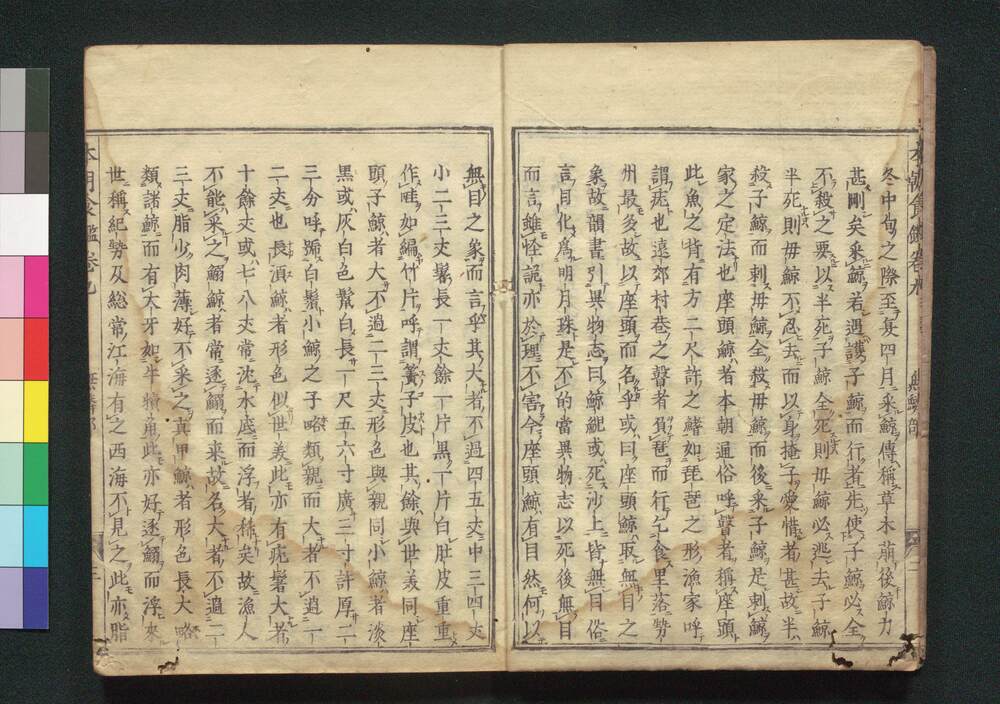 冬中旬之際至夏四月采鯨傳稱草木萠後鯨力
甚剛矣采鯨若遇護子鯨而行者先使子鯨必全
不殺之要以半死子鯨全死則毋鯨必逃去子鯨
半死則毋鯨不忍去而以身掩子愛惜者甚故半
殺子鯨而刺毋鯨全殺毋鯨而後采子鯨是刺鯨
家之定法也座頭鯨者本朝通俗呼瞽者稱座頭
此魚之背有方二尺許之鰭如琵琶之形漁家呼
謂疣也遠郊村巷之瞽者負琵而行乞食里落勢
州最多故以座頭而名乎或曰座頭鯨取無目之
象故韻書引異物志曰鯨鯢或死沙上皆無目俗
言目化爲明月珠是不的當異物志以死後無目
而言雖怪詭亦於理不害今座頭鯨有目然何以
無目之象而言乎其大者不過四五丈中三四丈
小二三丈鬐長一丈餘一片黒一片白肚皮重重
作畦如編竹片呼謂簀子皮也其餘與世美同座
頭子鯨者大不過二三丈形色與親同小鯨者淡
黒或灰白色鬚白長一尺五六寸廣三寸許厚二
三分呼號白鬚小鯨之子略類親而大者不過一
二丈也長須鯨者形色似世美此亦有疣鬐大者
十餘丈或七八丈常沈水底而浮者稀矣故漁人
不能采之鰯鯨者常逐鰯而来故名大者不過二
三丈脂少肉薄好不采之真甲鯨者形色長大略
類諸鯨而有大牙如牛犢角此亦好逐鰯而浮來
世稱紀勢及総常江海有之西海不見之此亦脂
本朝食鑑卷九